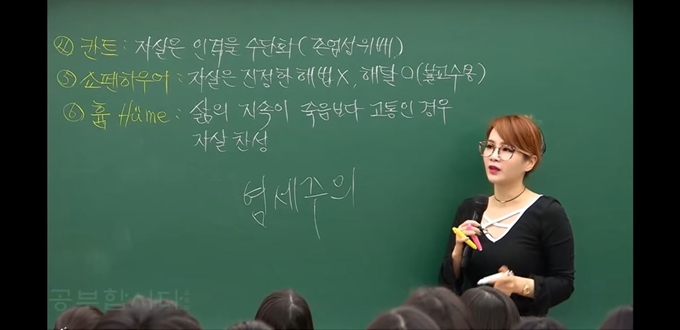 ④ 칸트 : 자살은 인격을 수단화 (존엄성 위배)
⑤ 쇼펜하우어 : 자살은 진정한 해법 X, 해탈 O (불교수용)
⑥ 흄 Hüme : 삶의 지속이 죽음보다 고통인 경우
자살 찬성
염세주의
공부합시다